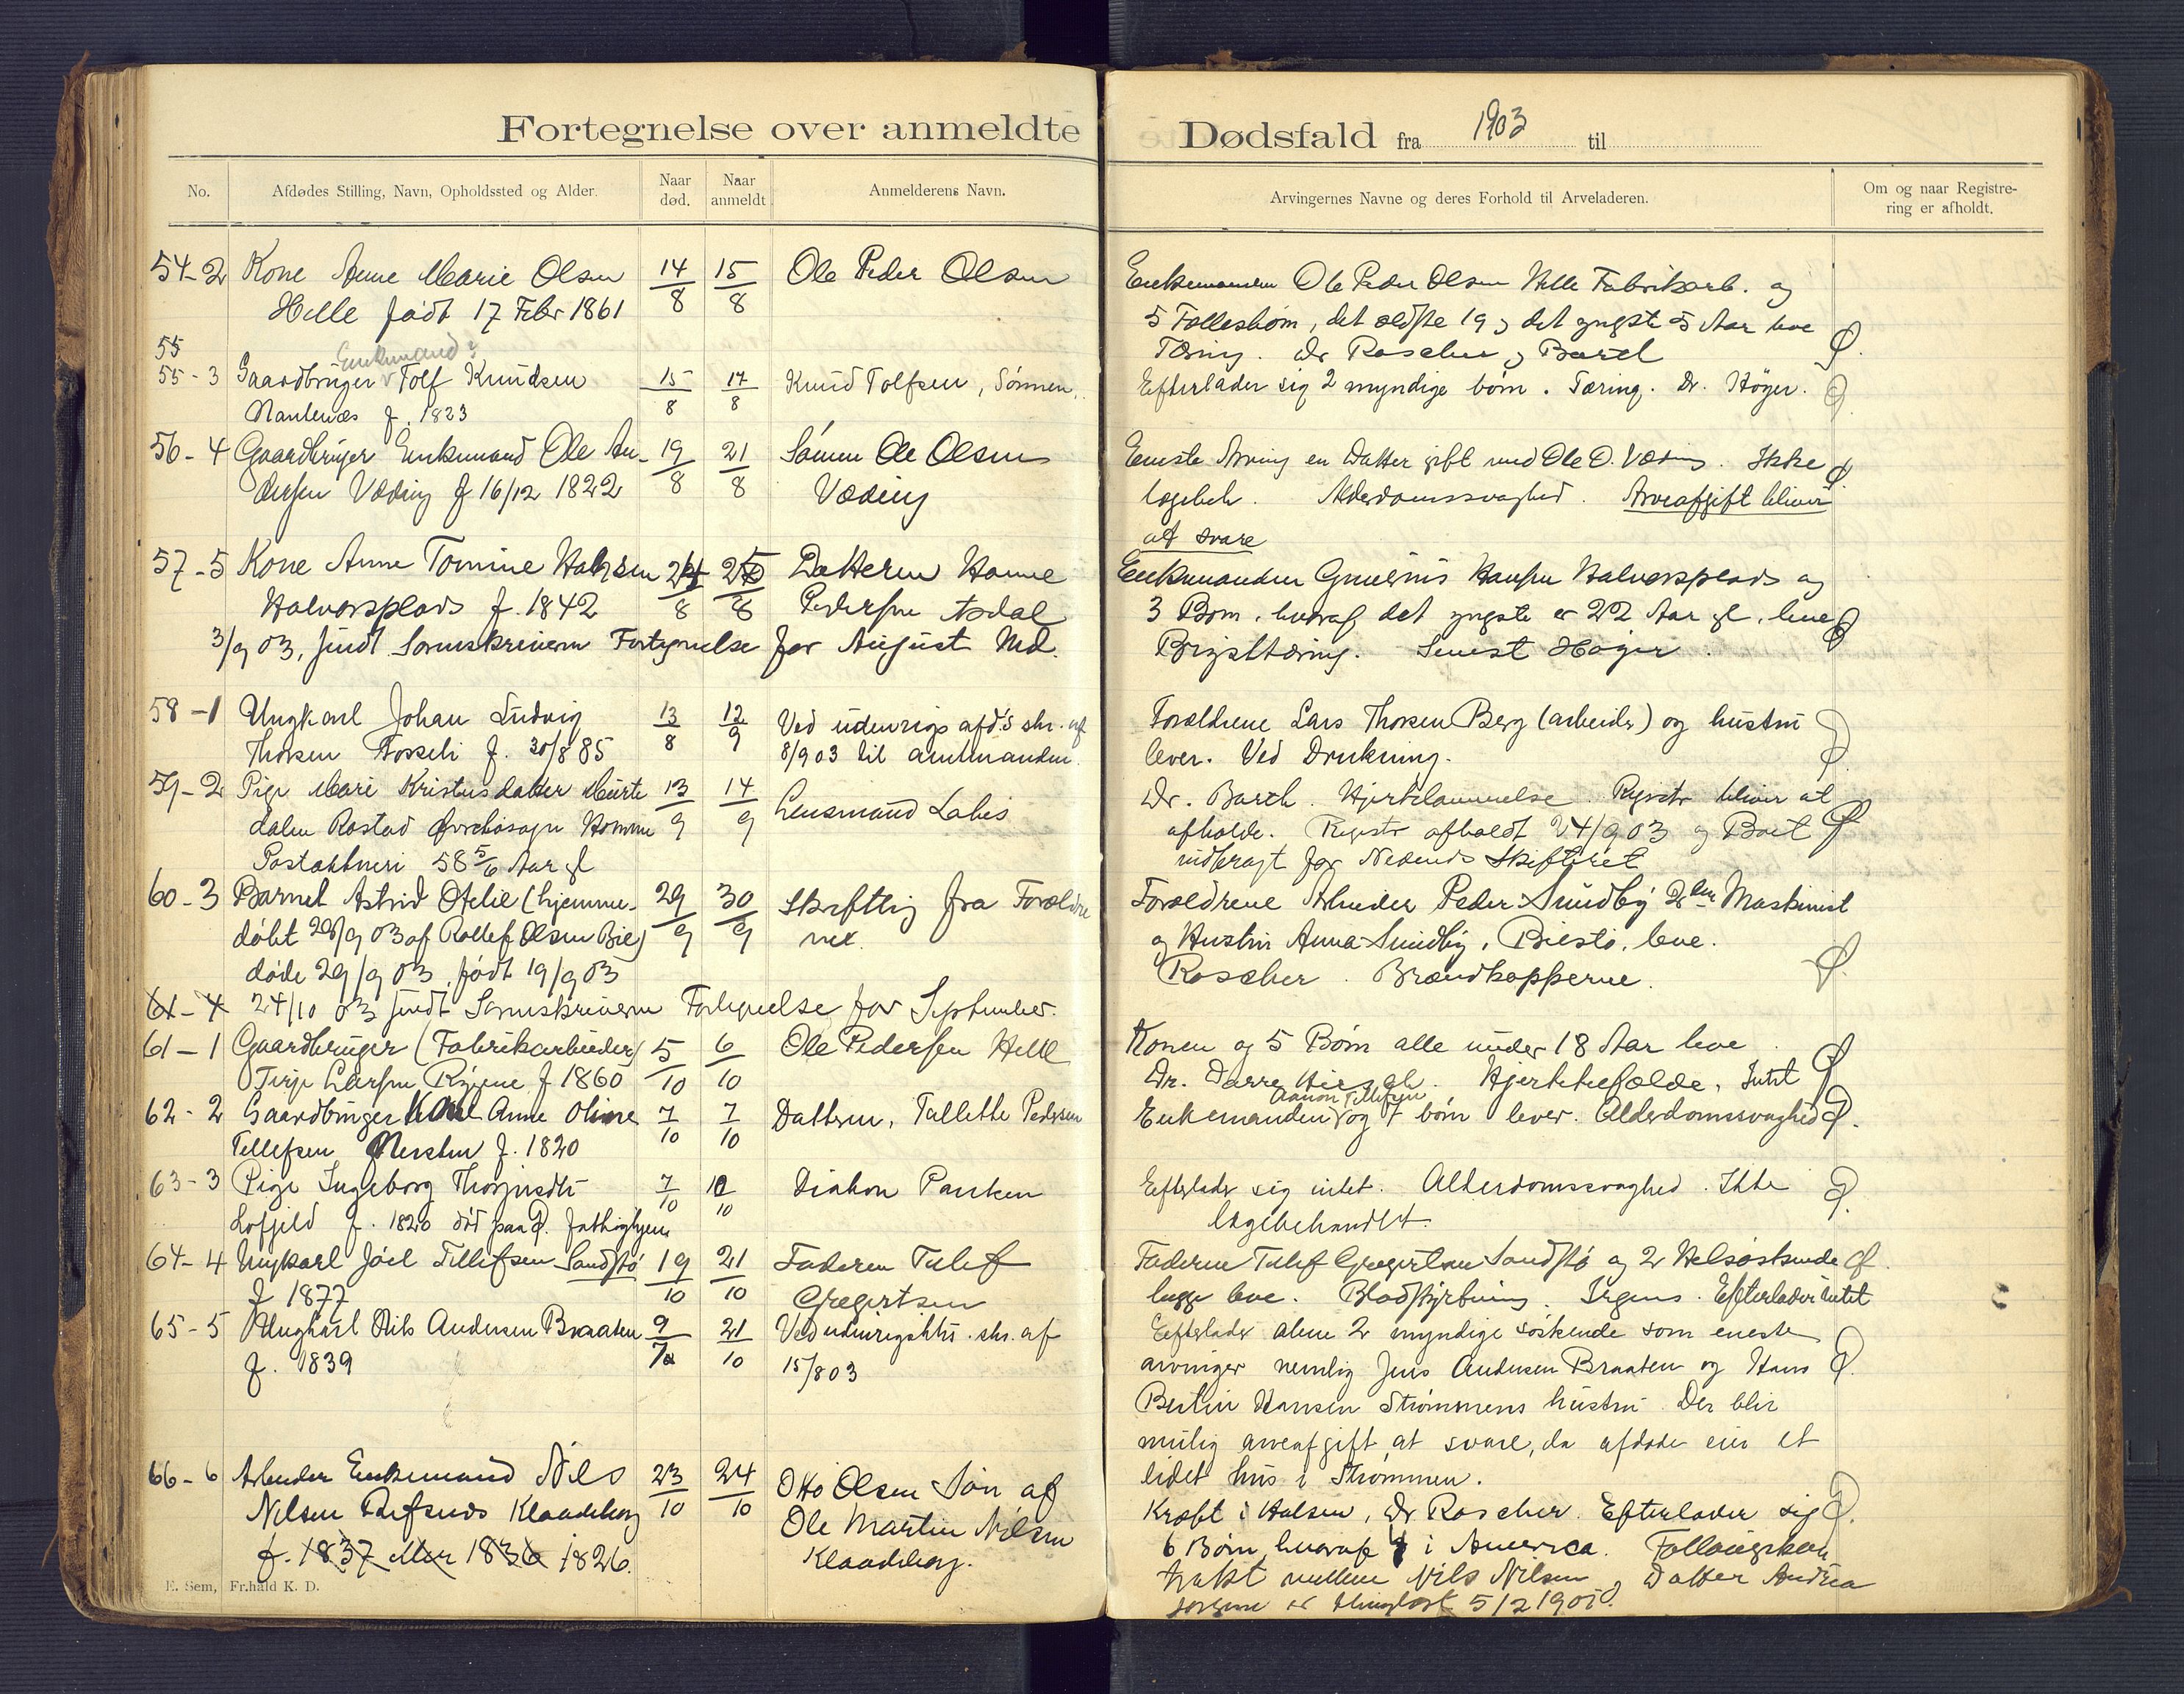 Fortegnelse over anmeldte Dødsfald fra 1903 til
No.
Afdødes Stilling, Navn, Opholdssted og Alder.
Naar død.
Naar anmeldt
Anmelderens Navn.
Arvingernes Navne og deres Forhold til Arveladeren.
Om og naar Registrering er afholdt.
54-2 Kone Anne Marie Olsen 14/8 15/8 Ole Peder Olsen
Helle født 17 Febr 1861
Enkemanden Ole Peder Olsen Helle Fabrikarb. og
5 Fællesbørn, det ældste 19 og det yngste 5 Aar leve
Tæring. Dr Roscher og Barth
55
Enkemand?
55-3 Gaardbruger Tolf Knudsen 15/8 17/8 Knud Tolfsen, Sønnen.
Narlenæs f. 1823
Efterlader sig 2 myndige børn. Tæring. Dr. Höyer.
56-4 Gaardbruger Enkemand Ole An- 19/8 21/8 Sönnen Ole Olsen
dersen Væding f 16/12 1822 Væding
Eneste Arving en Datter gift med Ole O. Væding. Ikke
lægebeh. Alderdomssvaghed. Arveafgift bliver
at svare
57-5 Kone Anne Tomine Hansen 24/8 25/8 Datteren Hanne
Halvorsplads f. 1842 Pedersen Asdal
Enkemanden Hansen Halvorsplads og
3 Børn, hvoraf det yngste er 22 Aar gl, leve
Brysttæring. Senest Höyer.
3/9 03, sendt Sorenskriveren Fortegnelse for August Md.
58-1 Ungkarl Johan Ludvig 13/8 12/9 Ved udenrigs afd's skr. af
Thorsen Fosseli f. 30/8 85 8/9 03 til amtmanden.
Forældrene Lars Thorsen Berg (arbeider) og hustru
lever. Ved Drukning.
59-2 Pige Mari Kristensdatter Murte 13/9 14/9 Lensmand Lahis
dalen Rostad Øvrebøsogn Homme
58 5/6 Aar gl
Dr. Barth. Hjertelammelse. Registr bliver at
afholde. Registr afholdt 24/9 03 og Boet
indbragt for Nedenes Skifteret
60-3 Barnet Astrid Ofelie (hjemme- 29/9 30/9 Skriftlig fra Forældre
døbt 28/9 03 af Rollef Olsen Bie) nes.
døde 29/9 03, født 19/9 03
Forældrene Arbeider Peder Sundby 2den Maskinist
og Hustru Anna Sundby, Biestø, leve.
Roscher. Brændkopperne.
61-4 24/10 03 sendt Sorenskriveren Fortegnelse for September.
61-1 Gaardbruger (Fabrikarbeider) 5/10 6/10 Ole Pedersen Helle
Terje Larsen Rygene f 1860
Konen og 5 Børn alle under 18 Aar leve.
Dr. Darre Hjertefeil. Intet
62-2 Gaardbruger Kone Anne Oline 7/10 7/10 Datteren, Tallette Pedersen
Tellefsen Nersten f. 1820
Aanon Tellefsen
Enkemanden og 7 børn lever. Alderdomssvaghed
63-3 Pige Ingeborg Thorjusdtr 7/10 12/10 Diakon Paulsen
Lofjeld f. 1820 död paa Ø. fattighjem
Efterlader sig intet. Alderdomssvaghed. Ikke
lægebehandlet.
64-4 Ungkarl Joel Tellefsen Sandstø 19/10 21/10 Faderen Tulef
f 1877 Gregertsen
Faderen Tulef Gregertsen Sandstø og 2 Helsøskende
begge leve. Blodstyrtning. Irgens. Efterlader intet
65-5 Ungkarl Nils Andersen Braaten 9/7 21/10 Ved udenrigsdpt. skr. af
f. 1839 15/8 03
Efterlader alene 2 myndige søskende som eneste
arvinger nemlig Jens Andersen Braaten og Hans
Bertin Hansen Strømmens hustru. Der blir
mulig arveafgift at svare, da afdøde eier et
lidet hus i Strømmen.
66-6 Arbeider Enkemand Nils 23/10 24/10 Otto Olsen Søn af
Nilsen Refsnes Klaadeborg Ole Martin Nilsen
f. 1837 eller 1836 1826. Klaadeborg.
Kræft i Halsen, Dr Roscher. Efterlader sig
6 Børn hvoraf 4 i America. Follaugskon
trakt mellem Nils Nilsen og Datter Andrea
er thinglæst 5/2 1901.
E. Sem, Fr.hald K. D.